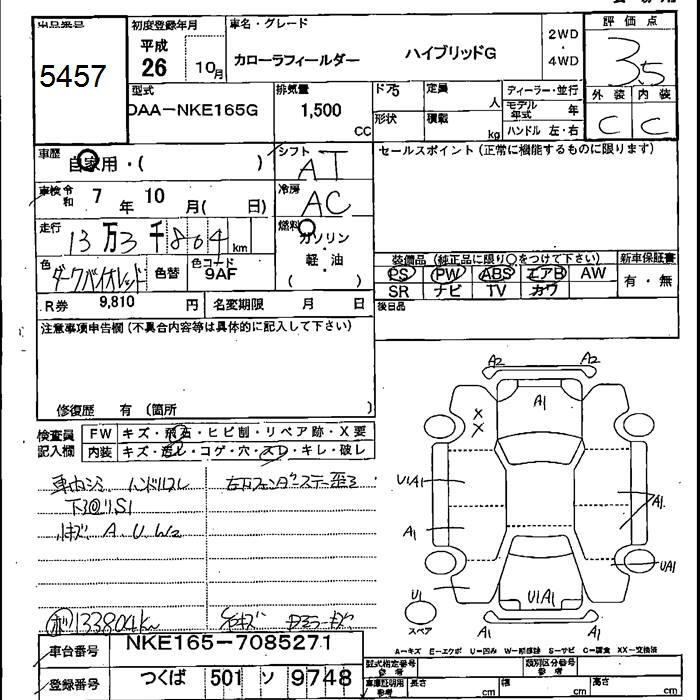 出品番号
5457
初度登録年月
平成
26 10月
車名・グレード
カローラフィールダー ハイブリッドG
2WD
・
4WD
評価点
3.5
外装 内装
C C
型式
DAA-NKE165G
排気量
1,500
CC
ドア 5
形状
定員
人
積載
kg
ディーラー・並行
モデル年式 年
ハンドル 左・右
車歴
自家用・( )
シフト
AT
セールスポイント (正常に機能するものに限ります)
車検 令和 7年 10月( 日)
冷房
AC
走行
13万3千804km
燃料
ガソリン
・
軽・油
( )
色
ダークバイオレット
色替
色コード
9AF
装備品 (純正品に限り○をつけて下さい)
PS PW ABS エアB AW
SR ナビ TV カワ
新車保証書
有・無
R券 9,810円
名変期限 月 日
後日品
注意事項申告欄 (不具合内容等は具体的に記入して下さい)
修復歴 有 (箇所 )
検査員
記入欄
FW キズ・飛石・ヒビ割・リペア跡・X要
内装 キズ・汚レ・コゲ・穴・スレ・キレ・破レ
車内シミ ハンドルスレ
小キズ A U W2
133804km
小キズ
A2 A2
A1
X
X
U1A1
A1
A1
UA1
U1
U1A1
A1 A1
スペア
A-キズ E-エクボ U-凹み W-補修跡 S-サビ C-腐食 XX-交換済
車台番号
NKE165-7085271
登録番号
つくば 501 ソ 9748
型式指定番号
参考
類別区分番号
参考
車庫証明用
参考
長さ cm 幅 cm 高さ cm